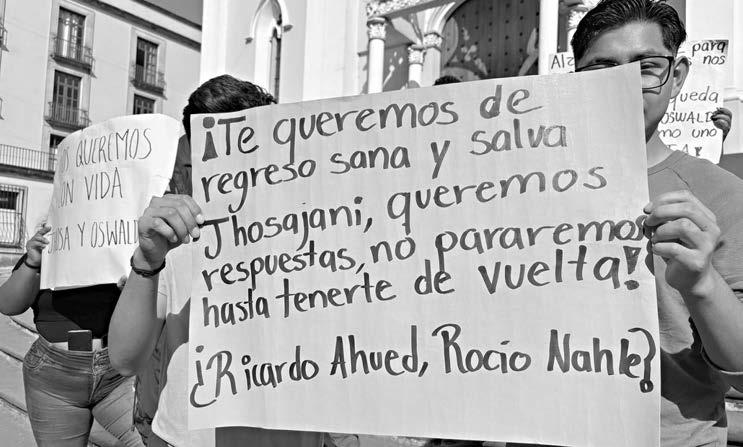 ¡Te queremos de
regreso sana y salva
Jhosajani, queremos
respuestas, no pararemos
hasta tenerte de vuelta!
¿Ricardo Ahued, Rocío Nahle?
QUEREMOS
CON VIDA
Y OSWALD
para
nos
OSWALD